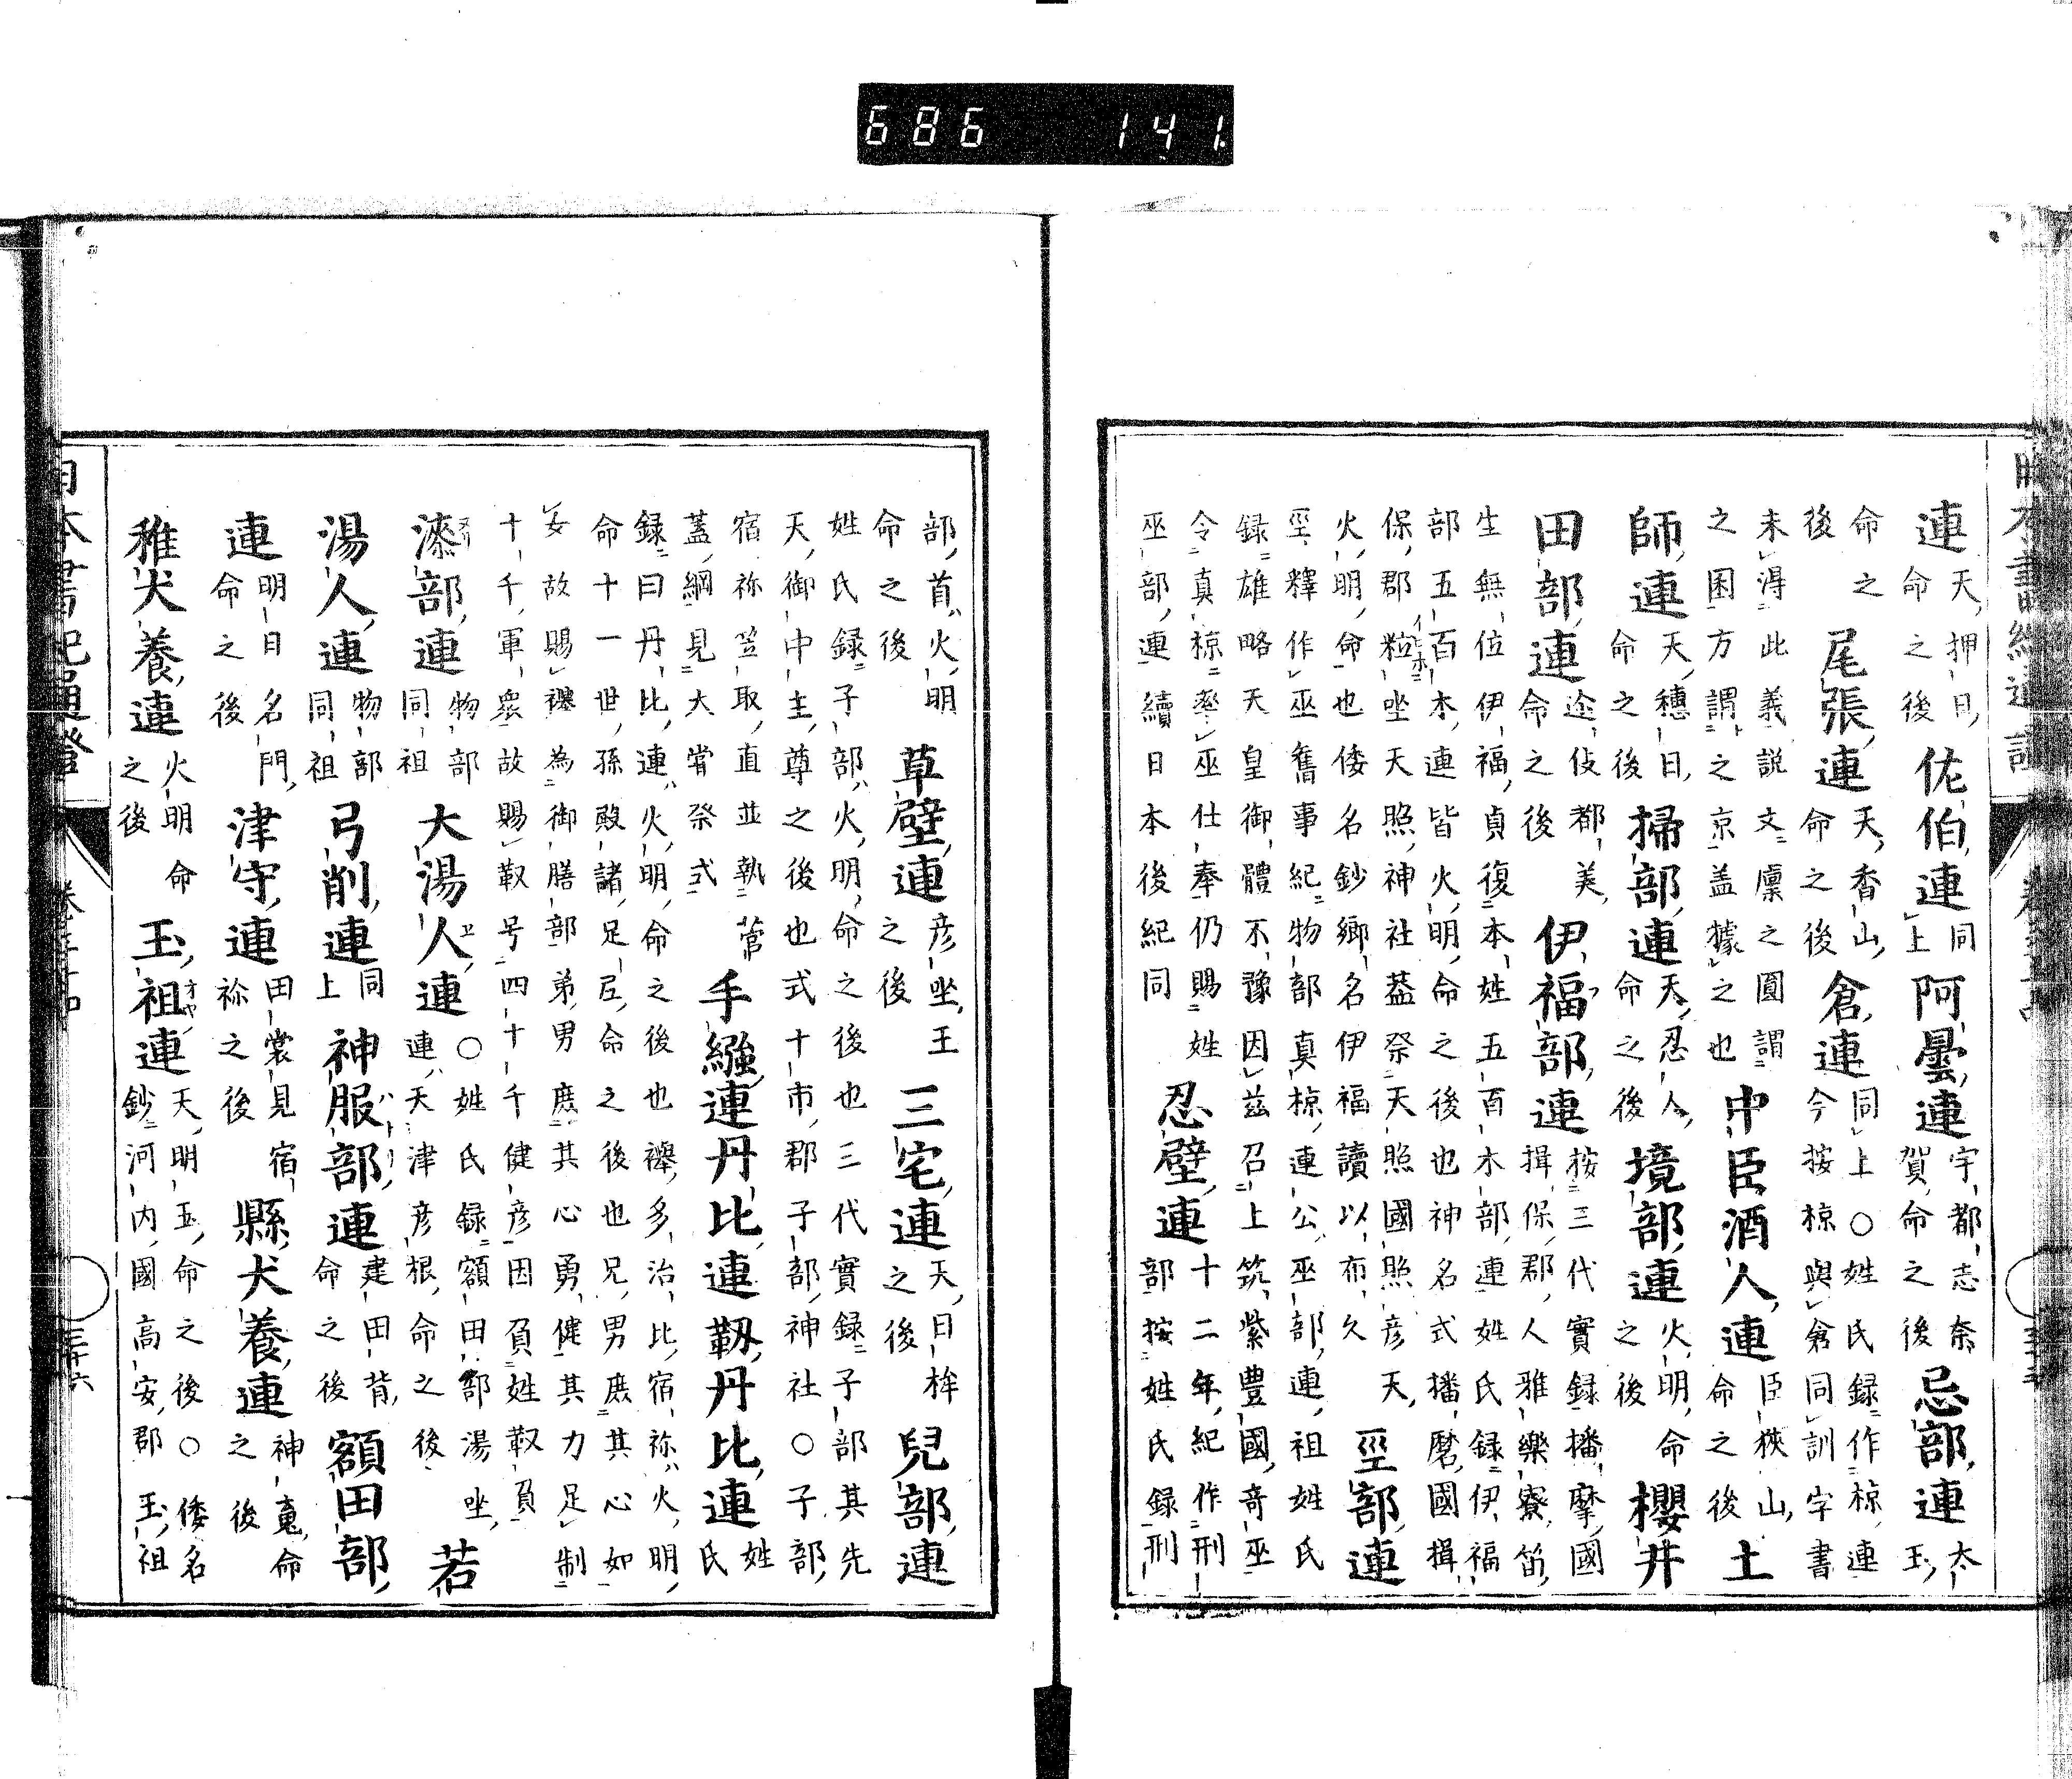 686 141
連天押日命之後佐伯連同上阿曇連宇都志奈賀命之後忌部連太玉
命之後尾張連天香山命之後倉連同上○姓氏録作椋連今按椋與倉同訓字書
未得此義説文廩之圓謂之囷方謂之京盖據之也中臣酒人連臣狹山命之後土
師連天穗日命之後掃部連天忍人命之後境部連火明命之後櫻井
田部連途伎都美命之後伊福部連按三代實録播摩國揖保郡人雅樂寮笛
生無位伊福貞復本姓五百木部連姓氏録伊福部五百木連皆火明命之後也神名式播磨國揖
保郡粒坐天照神社葢祭天照國照彦天火明命也倭名鈔郷名伊福讀以布久巠部連
巠釋作巫舊事紀物部真椋連公巫部連祖姓氏録雄略天皇御體不豫因茲召上筑紫豊國奇巫
令真椋率巫仕奉仍賜姓巫部連續日本後紀同忍壁連十二年紀作刑部按姓氏録刑
部首火明命之後草壁連彦坐王之後三宅連天日桙之後兒部連
姓氏録子部火明命之後也三代實録子部其先天御中主尊之後也式十市郡子部神社○子部
宿祢笠取直並執菅蓋綱見大甞祭式手繦連丹比連靱丹比連姓氏
録曰丹比連火明命之後也襷多治比宿祢火明命十一世孫殿諸足尼命之後也兄男庶其心如
女故賜襷為御膳部弟男庶其心勇健其力足制十千軍衆故賜靫号四十千健彦因負姓靫負
漆部連物部同祖大湯人連○姓氏録額田部湯坐連天津彦根命之後若
湯人連物部同祖弓削連同上神服部連建田背命之後額田部
連明日名門命之後津守連田裳見宿祢之後縣犬養連神䰟命之後
稚犬養連火明命之後玉祖連天明玉命之後○倭名鈔河内國高安郡玉祖
日本書紀通證
三十六